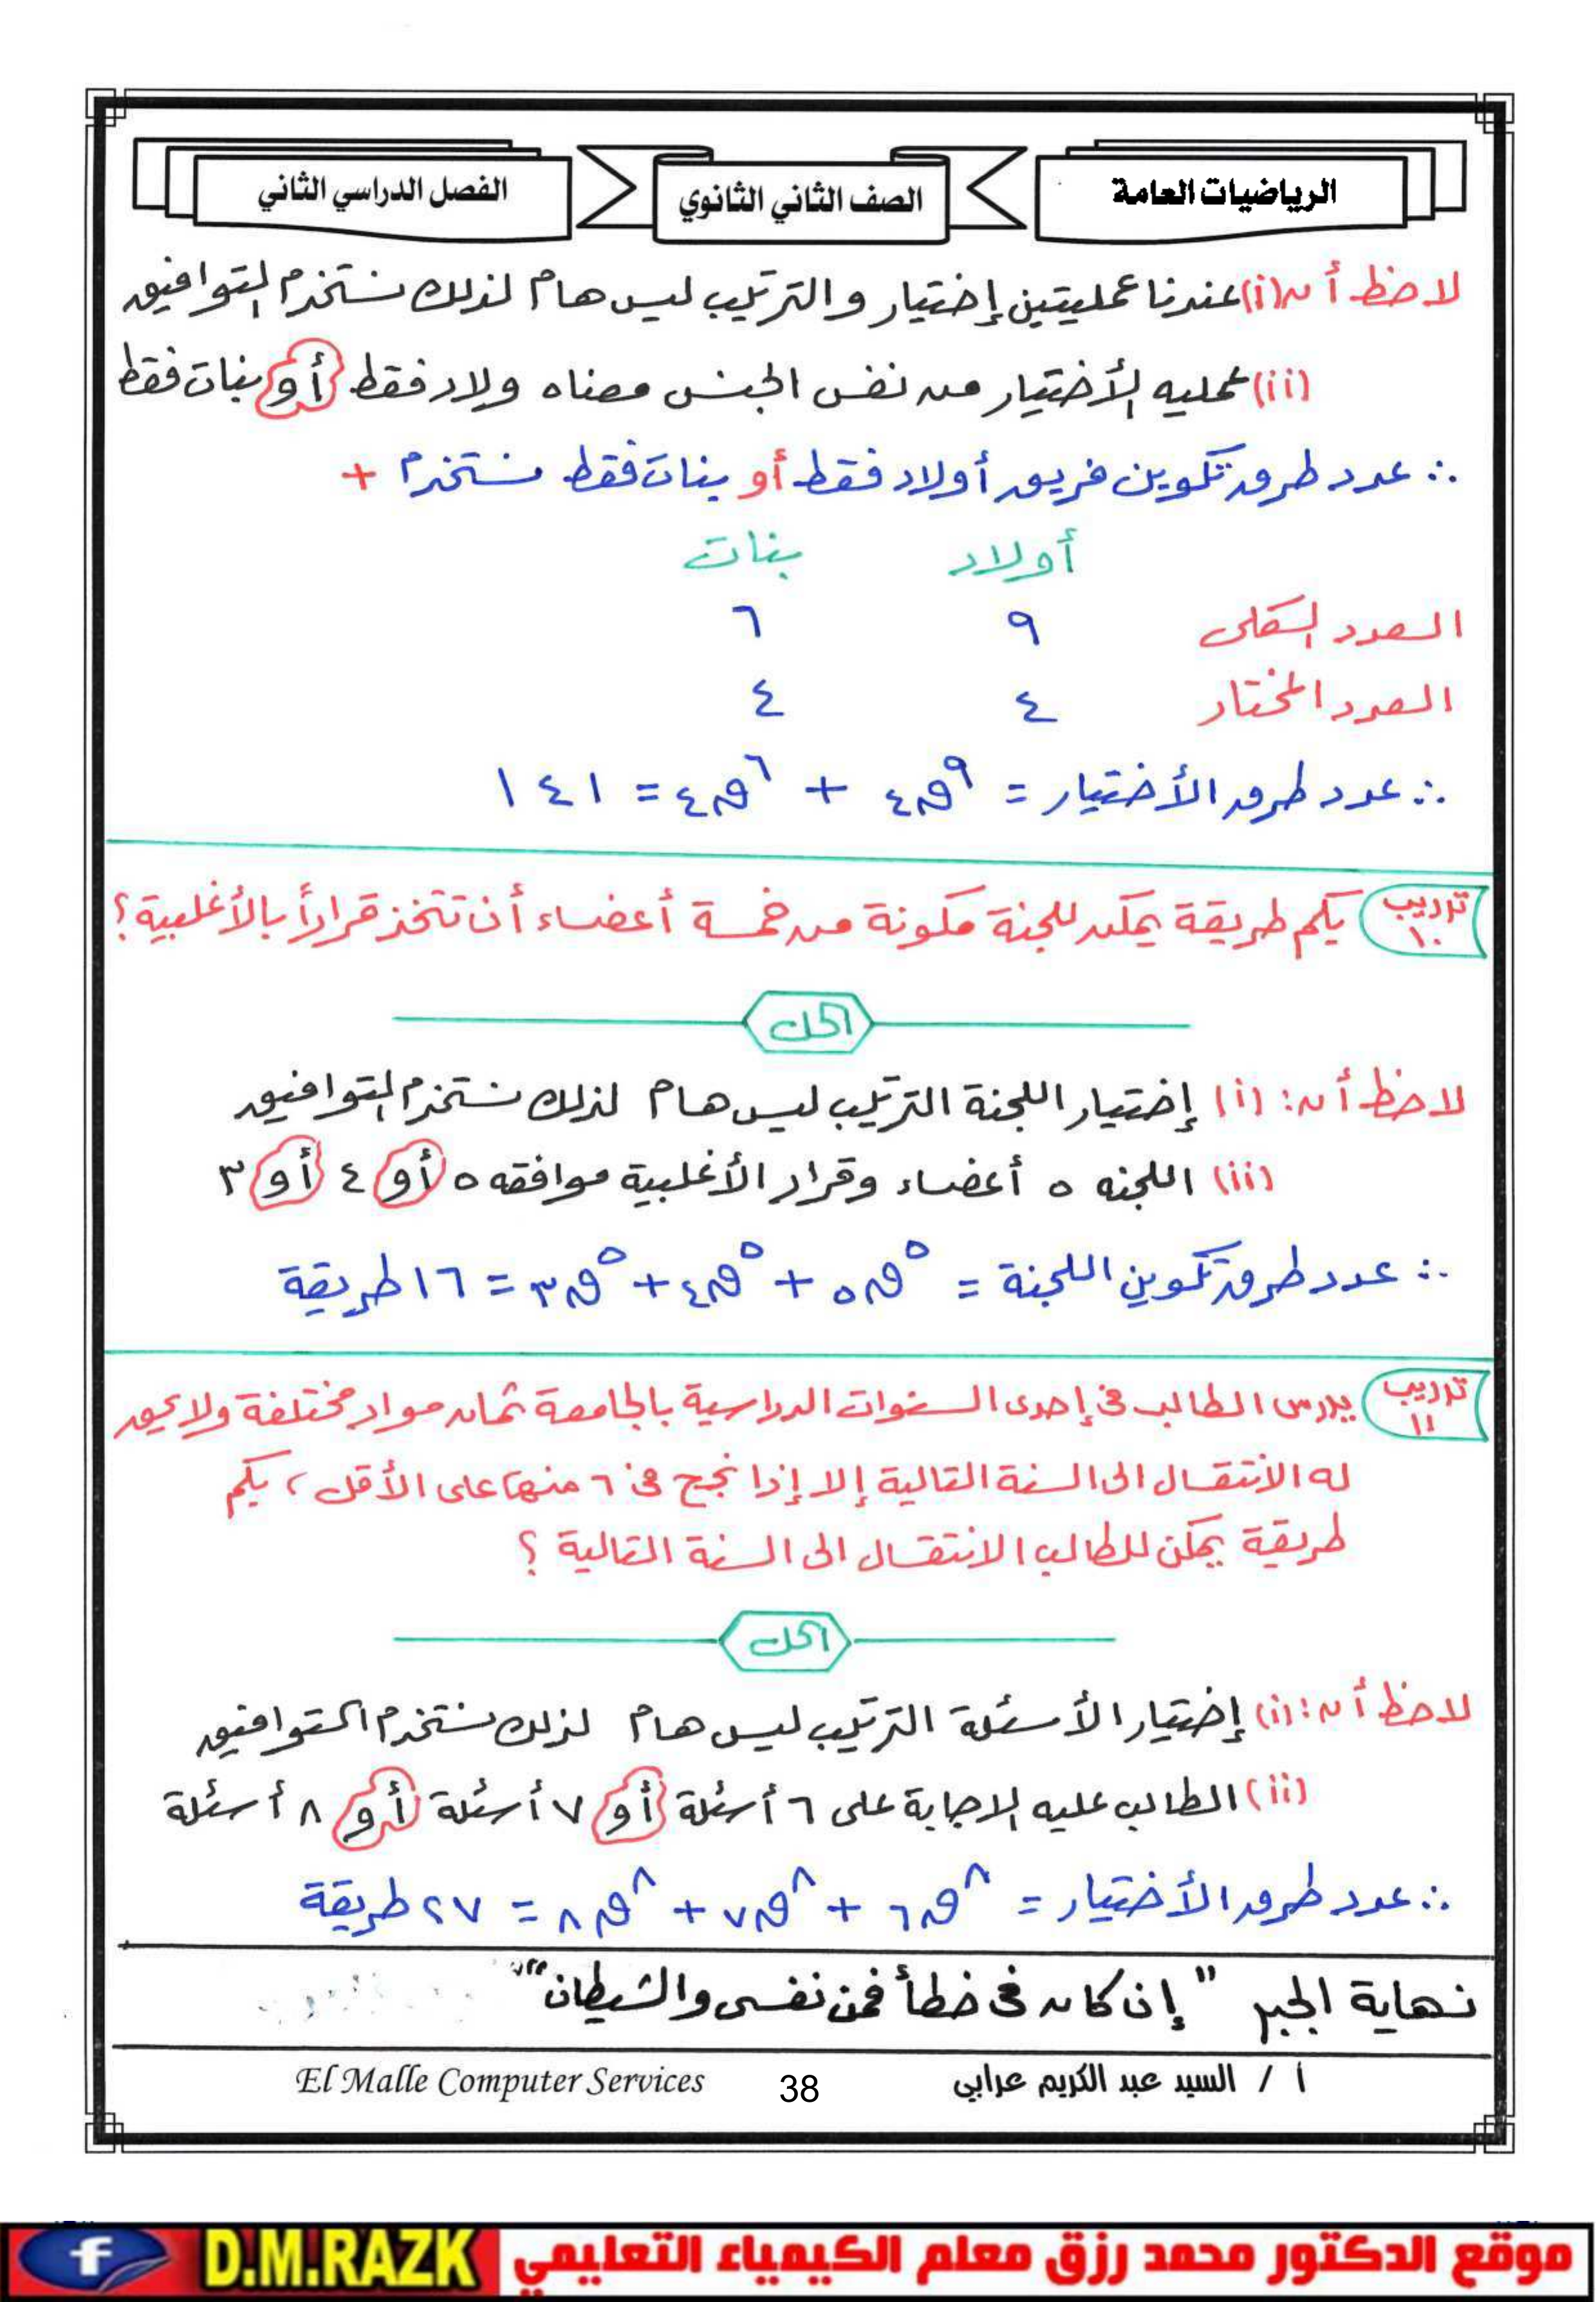 الرياضيات العامة
الصف الثاني الثانوي
الفصل الدراسي الثاني
لاحظ أن (i) عندنا عمليتين إختيار والترتيب ليس هام لذلك نستخدم التوافيق
(ii) عمليه الأختيار من نفس الجنس معناه ولاد فقط أو بنات فقط
∴ عدد طرق تكوين فريق أولاد فقط أو بنات فقط نستخدم +
أولاد بنات
العدد الكلى ٩ ٦
العدد المختار ٤ ٤
∴ عدد طرق الأختيار = ٩ق٤ + ٦ق٤ = ١٤١
تدريب ١٠ بكم طريقة يمكن للجنة مكونة من خمسة أعضاء أن تتخذ قراراً بالأغلبية؟
الحل
لاحظ أن: (i) إختيار اللجنة الترتيب ليس هام لذلك نستخدم التوافيق
(ii) اللجنه ٥ أعضاء وقرار الأغلبية موافقه ٥ أو ٤ أو ٣
∴ عدد طرق تكوين اللجنة = ٥ق٥ + ٥ق٤ + ٥ق٣ = ١٦ طريقة
تدريب ١١ يدرس الطالب فى إحدى السنوات الدراسية بالجامعة ثمان مواد مختلفة ولا يحق
له الانتقال الى السنة التالية إلا إذا نجح فى ٦ منها على الأقل ، بكم
طريقة يمكن للطالب الانتقال الى السنة التالية ؟
الحل
لاحظ أن: (i) إختيار الأسئلة الترتيب ليس هام لذلك نستخدم التوافيق
(ii) الطالب عليه الاجابة على ٦ أسئلة أو ٧ أسئلة أو ٨ أسئلة
∴ عدد طرق الأختيار = ٨ق٦ + ٨ق٧ + ٨ق٨ = ٢٧ طريقة
نهاية الجبر " إن كان فى خطأ فمن نفسى والشيطان "
أ / السيد عبد الكريم عرابي
38
El Malle Computer Services
موقع الدكتور محمد رزق معلم الكيمياء التعليمي
D.M.RAZK
f